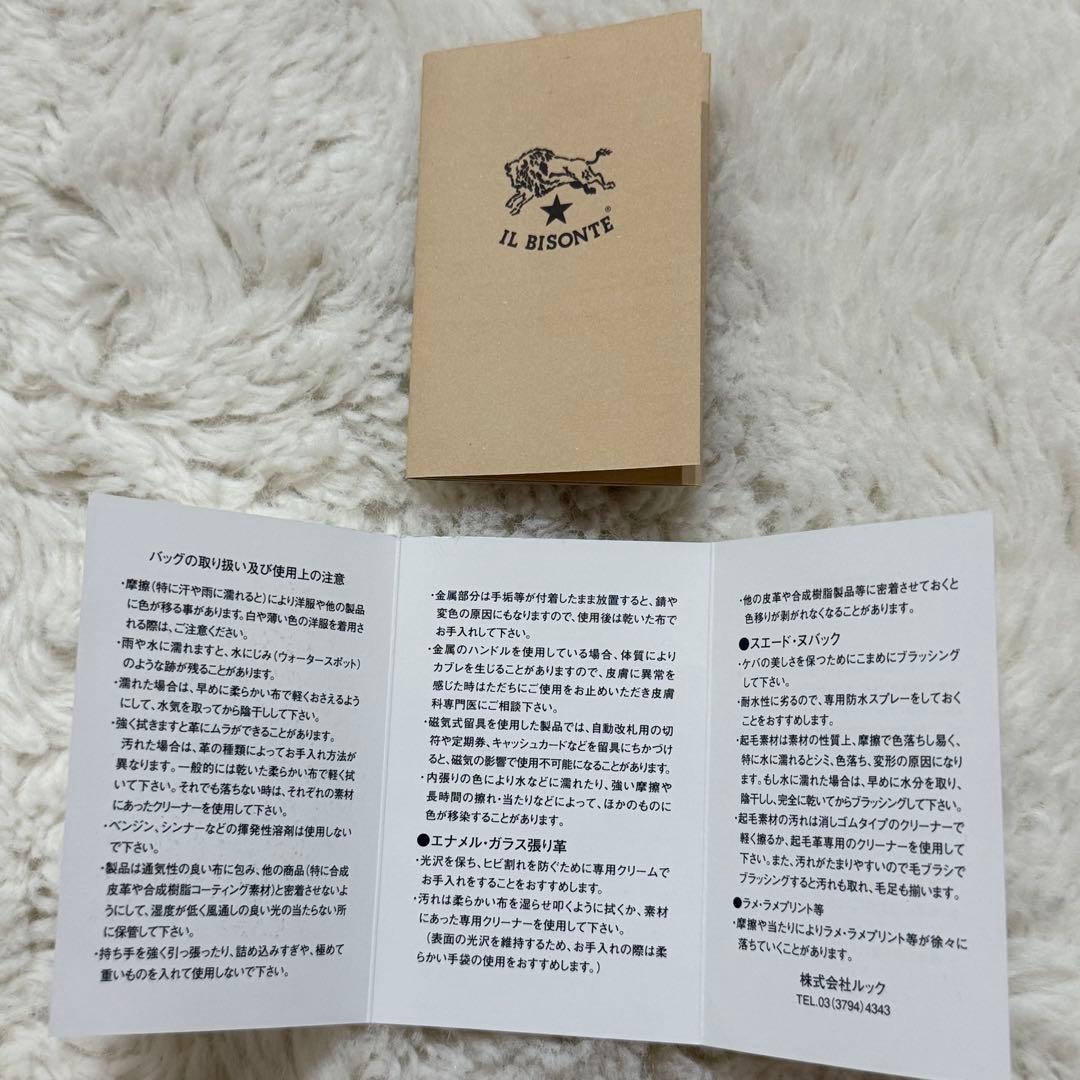 IL BISONTE®
バッグの取り扱い及び使用上の注意
・摩擦(特に汗や雨に濡れると)により洋服や他の製品
に色が移る事があります。白や薄い色の洋服を着用さ
れる際は、ご注意ください。
・雨や水に濡れますと、水にじみ(ウォータースポット)
のような跡が残ることがあります。
・濡れた場合は、早めに柔らかい布で軽くおさえるよう
にして、水気を取ってから陰干しして下さい。
・強く拭きますと革にムラができることがあります。
汚れた場合は、革の種類によってお手入れ方法が
異なります。一般的には乾いた柔らかい布で軽く拭
いて下さい。それでも落ちない時は、それぞれの素材
にあったクリーナーを使用して下さい。
・ベンジン、シンナーなどの揮発性溶剤は使用しない
で下さい。
・製品は通気性の良い布に包み、他の商品(特に合成
皮革や合成樹脂コーティング素材)と密着させないよ
うにして、湿度が低く風通しの良い光の当たらない所
に保管して下さい。
・持ち手を強く引っ張ったり、詰め込みすぎや、極めて
重いものを入れて使用しないで下さい。
・金属部分は手垢等が付着したまま放置すると、錆や
変色の原因にもなりますので、使用後は乾いた布で
お手入れして下さい。
・金属のハンドルを使用している場合、体質により
カブレを生じることがありますので、皮膚に異常を
感じた時はただちにご使用をお止めいただき皮膚
科専門医にご相談下さい。
・磁気式留具を使用した製品では、自動改札用の切
符や定期券、キャッシュカードなどを留具にちかづけ
ると、磁気の影響で使用不可能になることがあります。
・内張りの色により水などに濡れたり、強い摩擦や
長時間の擦れ・当たりなどによって、ほかのものに
色が移染することがあります。
●エナメル・ガラス張り革
・光沢を保ち、ヒビ割れを防ぐために専用クリームで
お手入れをすることをおすすめします。
・汚れは柔らかい布を湿らせ叩くように拭くか、素材
にあった専用クリーナーを使用して下さい。
(表面の光沢を維持するため、お手入れの際は柔
らかい手袋の使用をおすすめします。)
・他の皮革や合成樹脂製品等に密着させておくと
色移りが剥がれなくなることがあります。
●スエード・ヌバック
・ケバの美しさを保つためにこまめにブラッシング
して下さい。
・耐水性に劣るので、専用防水スプレーをしておく
ことをおすすめします。
・起毛素材は素材の性質上、摩擦で色落ちし易く、
特に水に濡れるとシミ、色落ち、変形の原因になり
ます。もし水に濡れた場合は、早めに水分を取り、
陰干しし、完全に乾いてからブラッシングして下さい。
・起毛素材の汚れは消しゴムタイプのクリーナーで
軽く擦るか、起毛革専用のクリーナーを使用して
下さい。また、汚れがたまりやすいので毛ブラシで
ブラッシングすると汚れも取れ、毛足も揃います。
●ラメ・ラメプリント等
・摩擦や当たりによりラメ・ラメプリント等が徐々に
落ちていくことがあります。
株式会社ルック
TEL.03(3794)4343